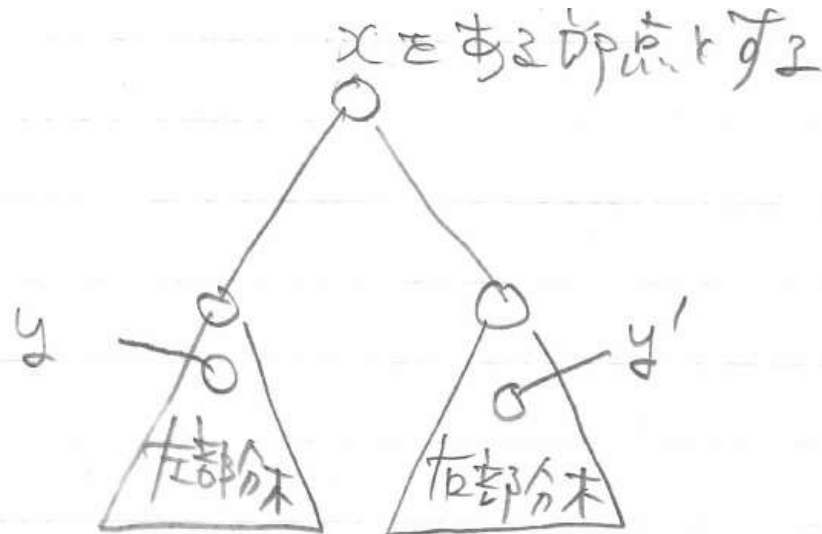 xをある節点とする
y
y'
左部分木
右部分木